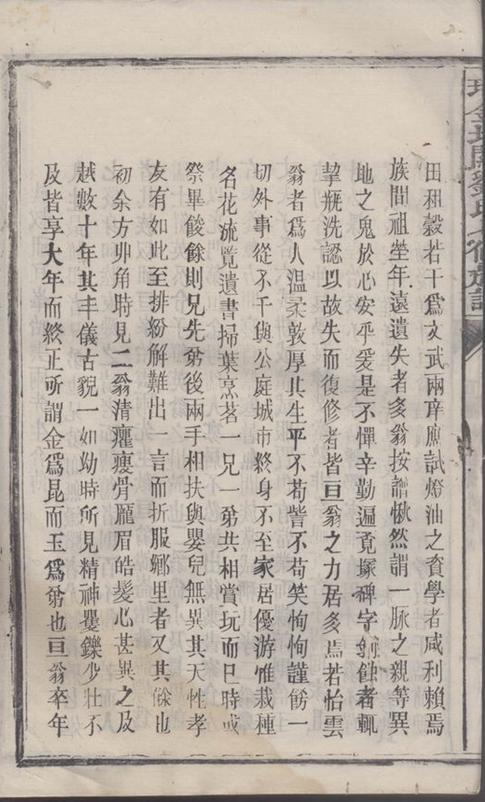 田租穀若干為文武兩庠應試燈油之資學者咸利賴焉
族間祖塋年遠遺失者多翁按譜愀然謂一脉之親等異
地之鬼於心安乎爰是不憚辛勤遍覓塚碑字剝蝕者輒
挈瓶洗認以故失而復修者皆亘翁之力居多焉若怡雲
翁者為人温柔敦厚其生平不苟訾不苟笑恂恂謹飭一
切外事從不干與公庭城市終身不至家居優游惟栽種
名花流覧遺書掃葉烹茗一兄一弟共相賞玩而已時或
祭畢餕餘則兄先弟後兩手相扶與嬰兒無異其天性孝
友有如此至排紛解難出一言而折服鄉里者又其餘也
初余方丱角時見二翁清癯瘦骨龎眉皓髮心甚異之及
越數十年其丰儀古貌一如幼時所見精神矍鑠少壯不
及皆享大年而終正所謂金為昆而玉為弟也亘翁卒年